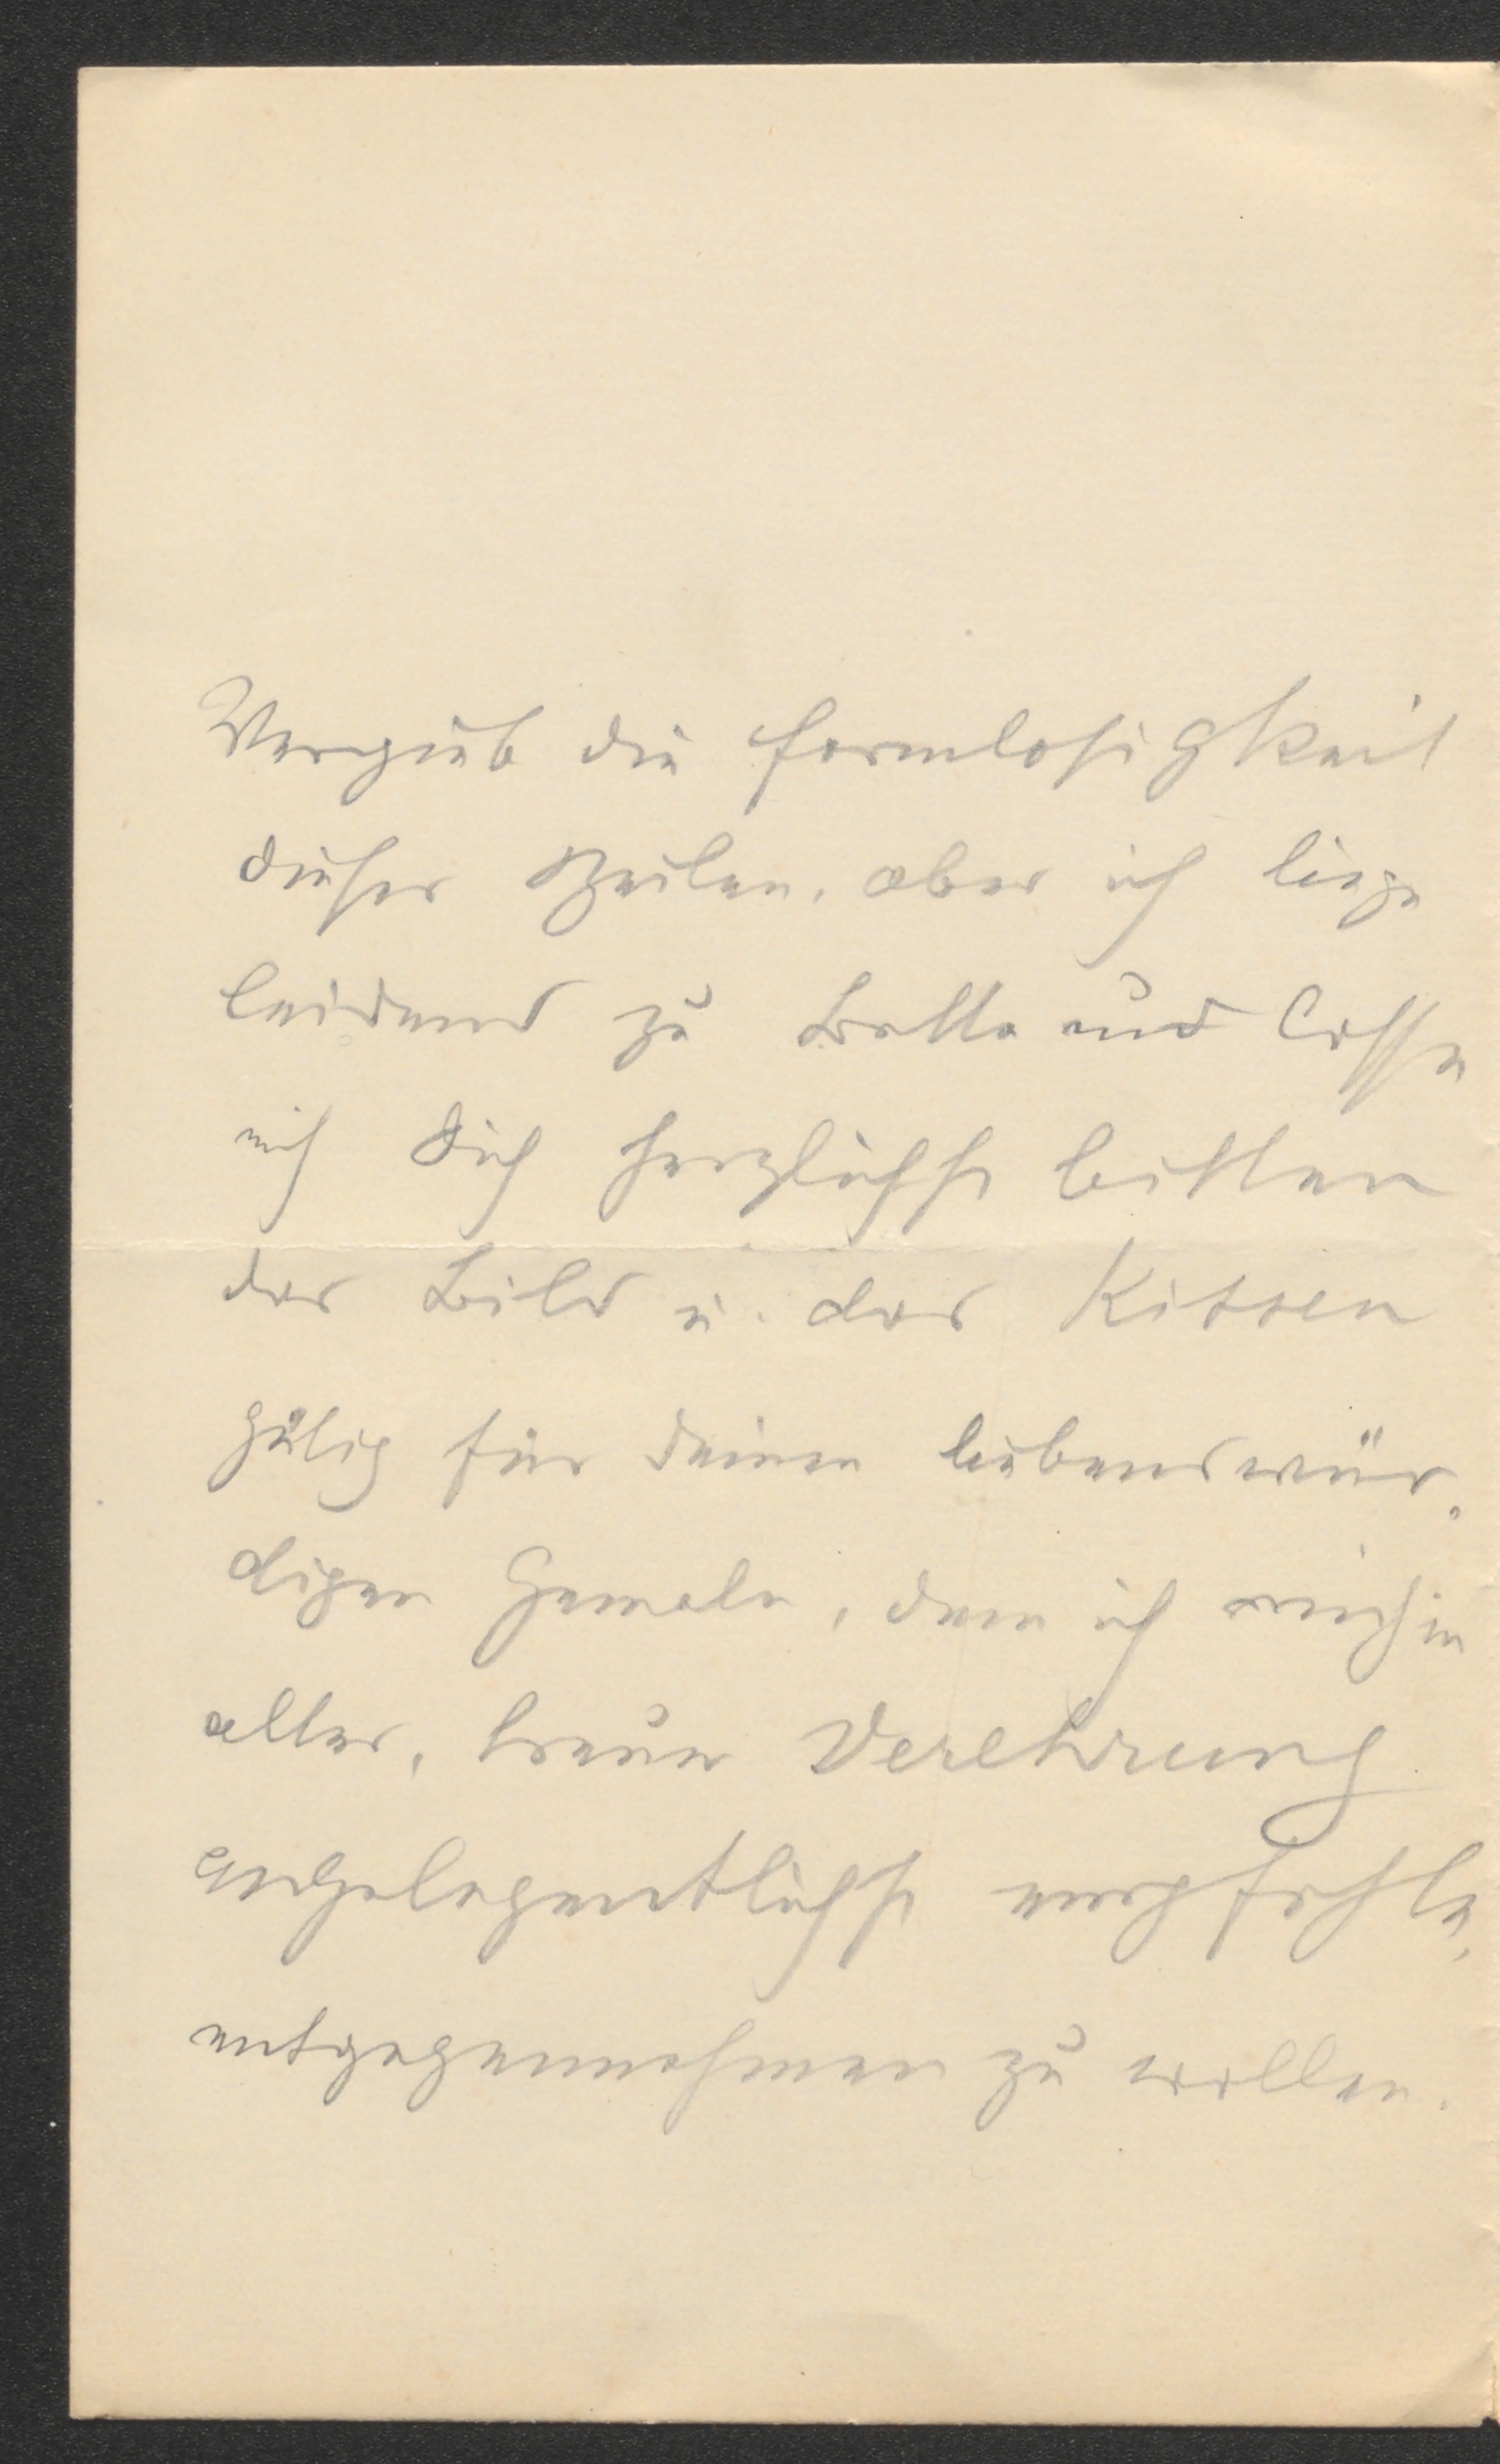 Vergieb die Formlosigkeit
dieser Zeilen, aber ich liege
leidend zu Bette und lasse
mich Dich herzlichst bitten
das Bild u. das Kissen
gütig für Deinen liebenswür-
digen Gemahl, dem ich mich in
alter, treuer Verehrung
angelegentlichst empfehle,
entgegennehmen zu wollen.